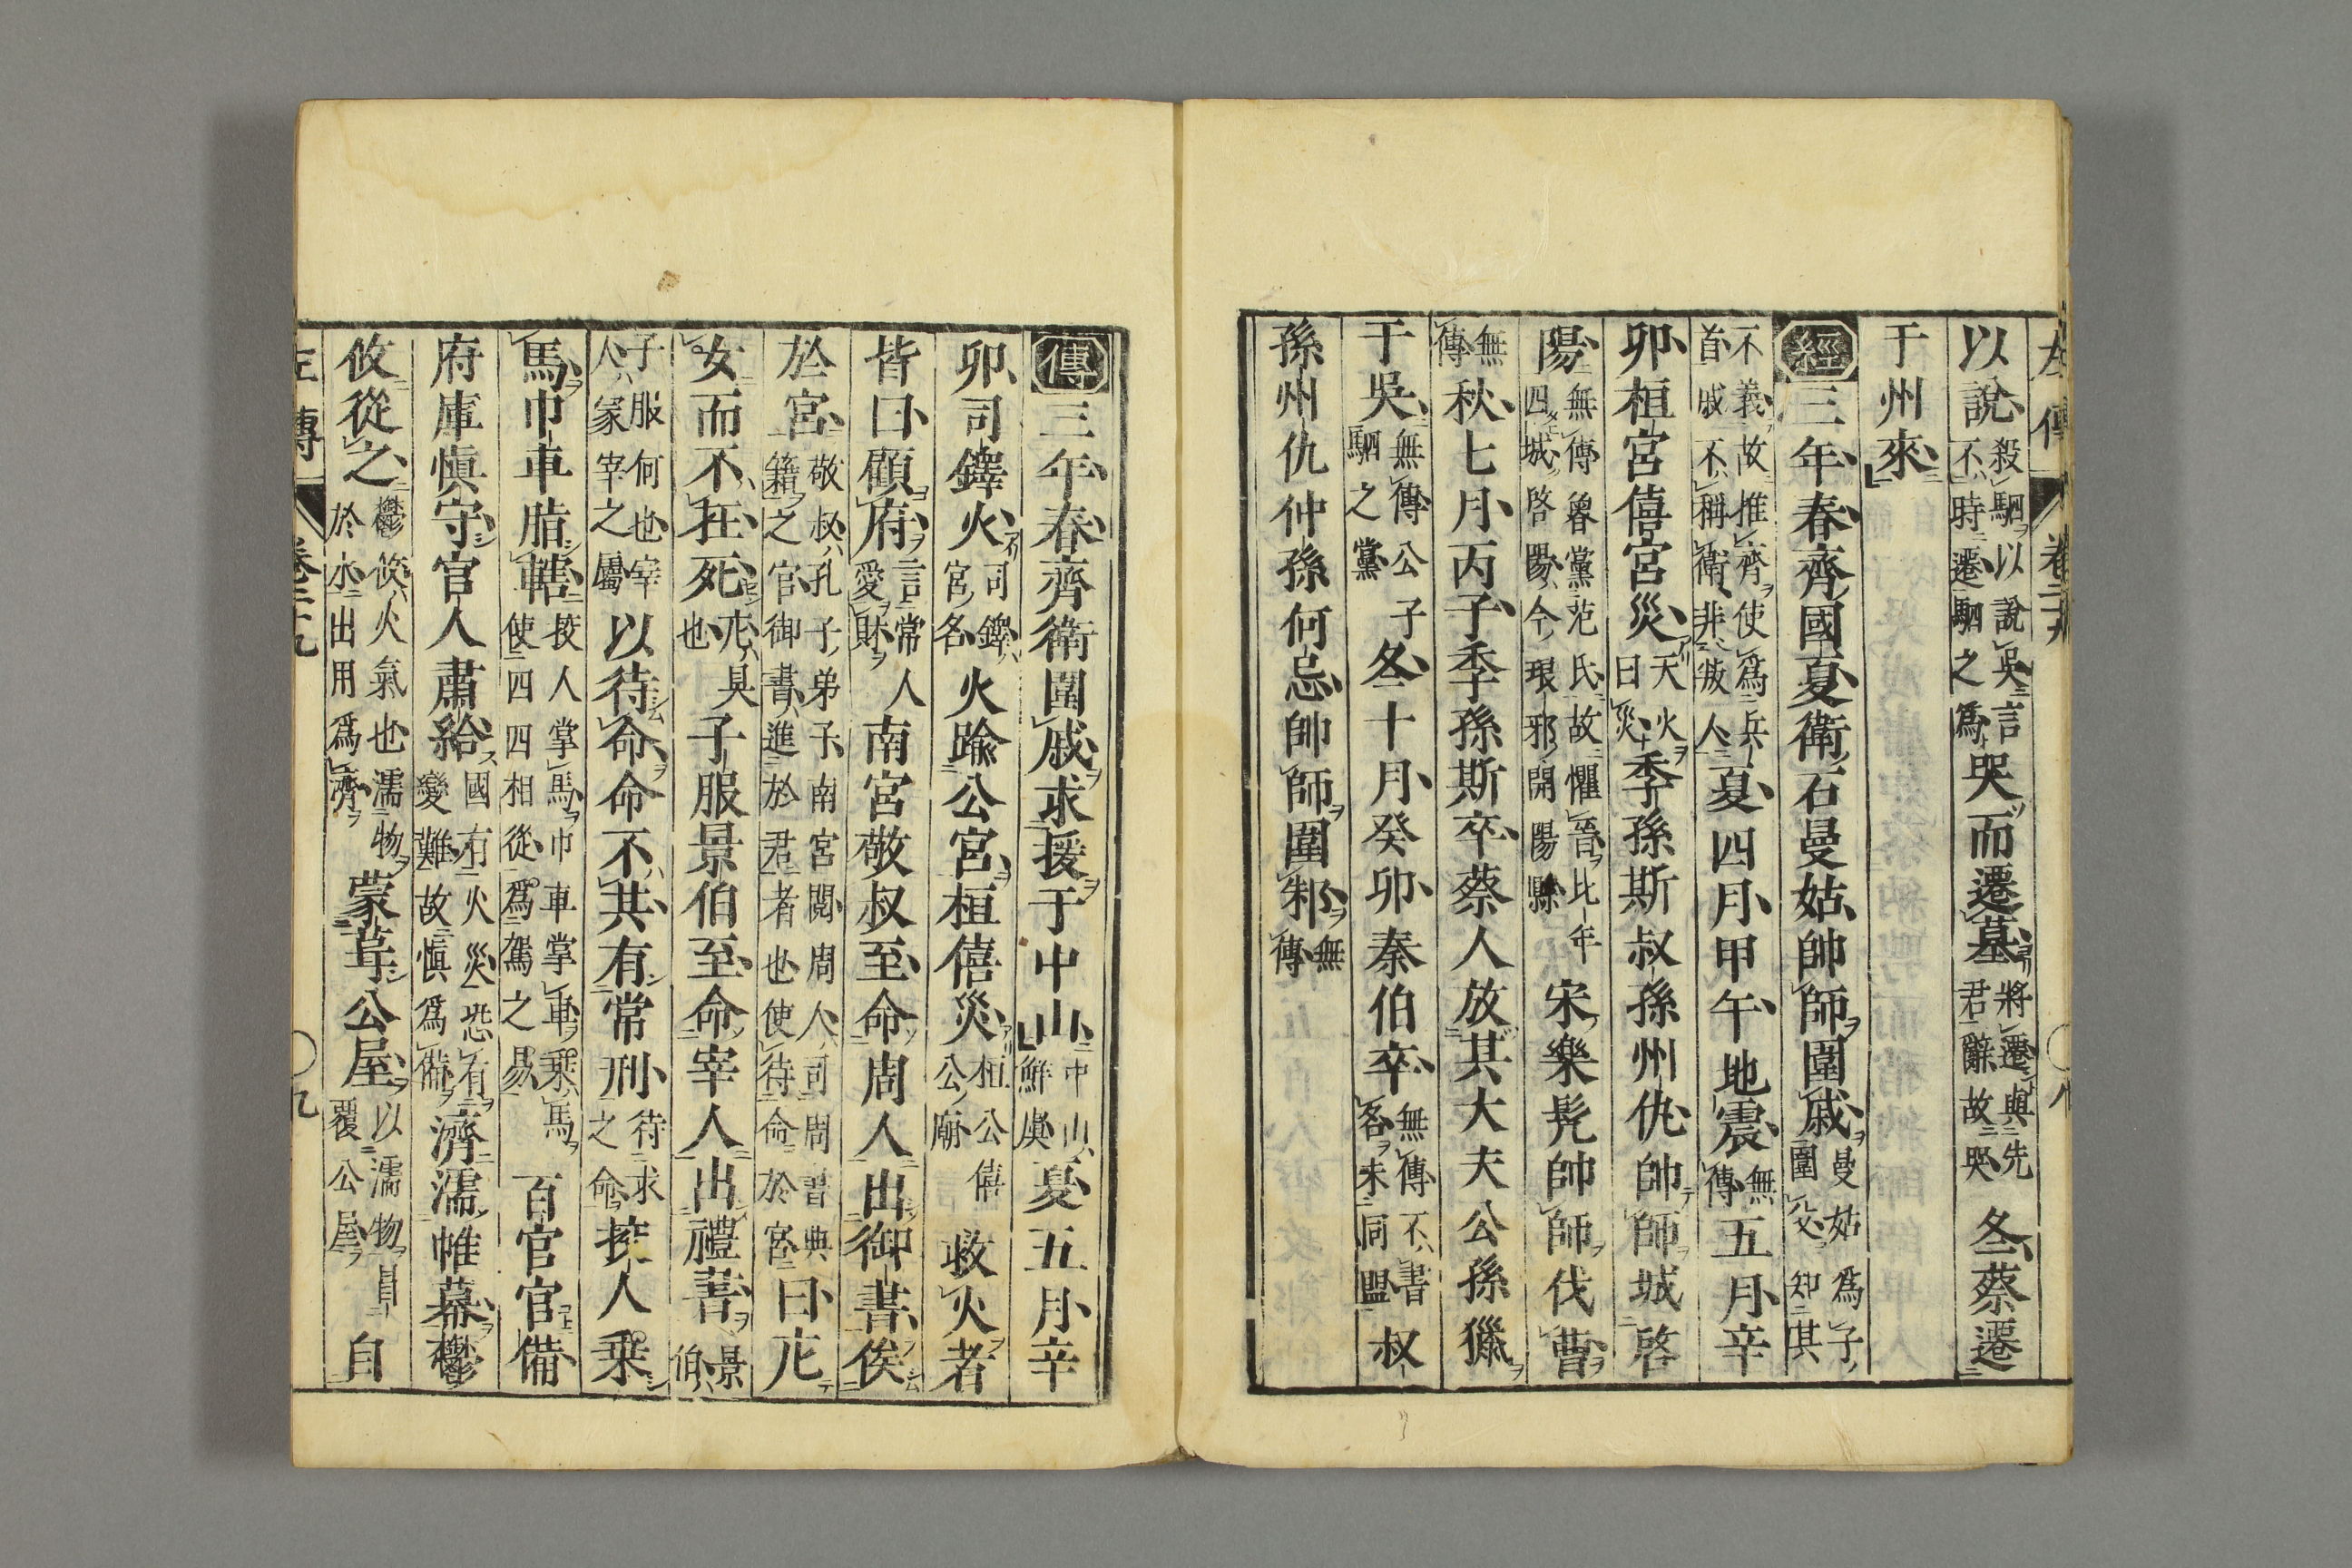 左傳 卷二十九 ○八
以說殺駟以說吳言不時遷駟之爲哭而遷墓將遷與先君辭故哭冬蔡遷
于州來
經三年春齊國夏衛石曼姑帥師圍戚曼姑爲子圍父知其
不義故推齊使爲兵首戚不稱衛非叛人夏四月甲午地震無傳五月辛
卯桓宮僖宮災天火曰災季孫斯叔孫州仇帥師城啓
陽無傳魯黨范氏故懼晉比年四城啓陽今琅邪開陽縣宋樂髡帥師伐曹
無傳秋七月丙子季孫斯卒蔡人放其大夫公孫獵
于吳無傳公子駟之黨冬十月癸卯秦伯卒無傳不書名未同盟叔
孫州仇仲孫何忌帥師圍邾無傳
傳三年春齊衛圍戚求援于中山中山鮮虞夏五月辛
卯司鐸火司鐸宮名火踰公宮桓僖災桓公僖公廟救火者
皆曰顧府言常人愛財南宮敬叔至命周人出御書俟
於宮敬叔孔子弟子南宮閱周人司周書典籍之官御書進於君者也使待命於宮曰庀
女而不在死庀具也子服景伯至命宰人出禮書景伯
子服何也宰人冢宰之屬以待命命不共有常刑待求之命校人乘
馬巾車脂轄校人掌馬巾車掌車乘馬使四四相從爲駕之易百官官備
府庫慎守官人肅給國有火災恐有變難故慎爲備濟濡帷幕鬱
攸從之鬱攸火氣也濡物於水出用爲濟蒙葺公屋以濡物冒覆公屋自
左傳 卷二十九 ○九